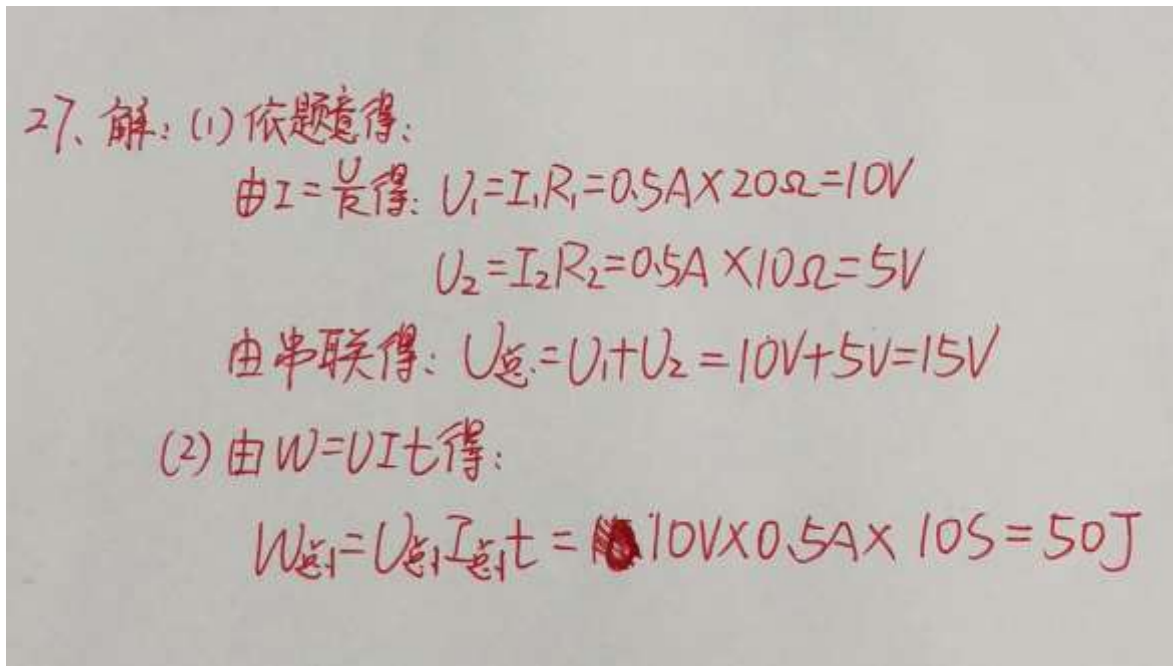 27、解：(1)依题意得：
由I=U/R得：U₁=I₁R₁=0.5A×20Ω=10V
U₂=I₂R₂=0.5A×10Ω=5V
由串联得：U总=U₁+U₂=10V+5V=15V
(2)由W=UIt得：
W总1=U总1I总1t=10V×0.5A×10S=50J